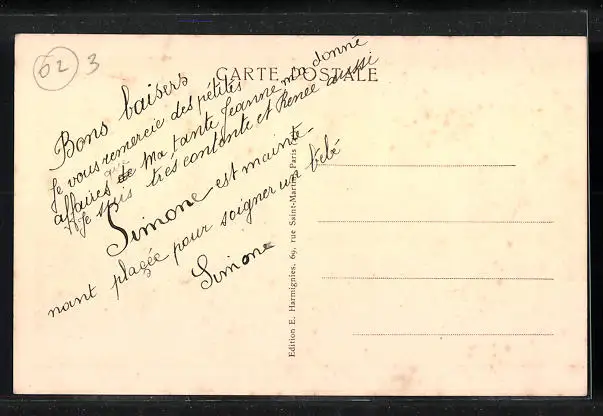 62 3
CARTE POSTALE
Bons baisers
Je vous remercie des petites
affaires que ma tante Jeanne m'a donné
Je suis très contente et Renée aussi
Simone est mainte-
nant plaçée pour soigner un bébé
Simone
Edition E. Harmignies, 69, rue Saint-Martin, Paris